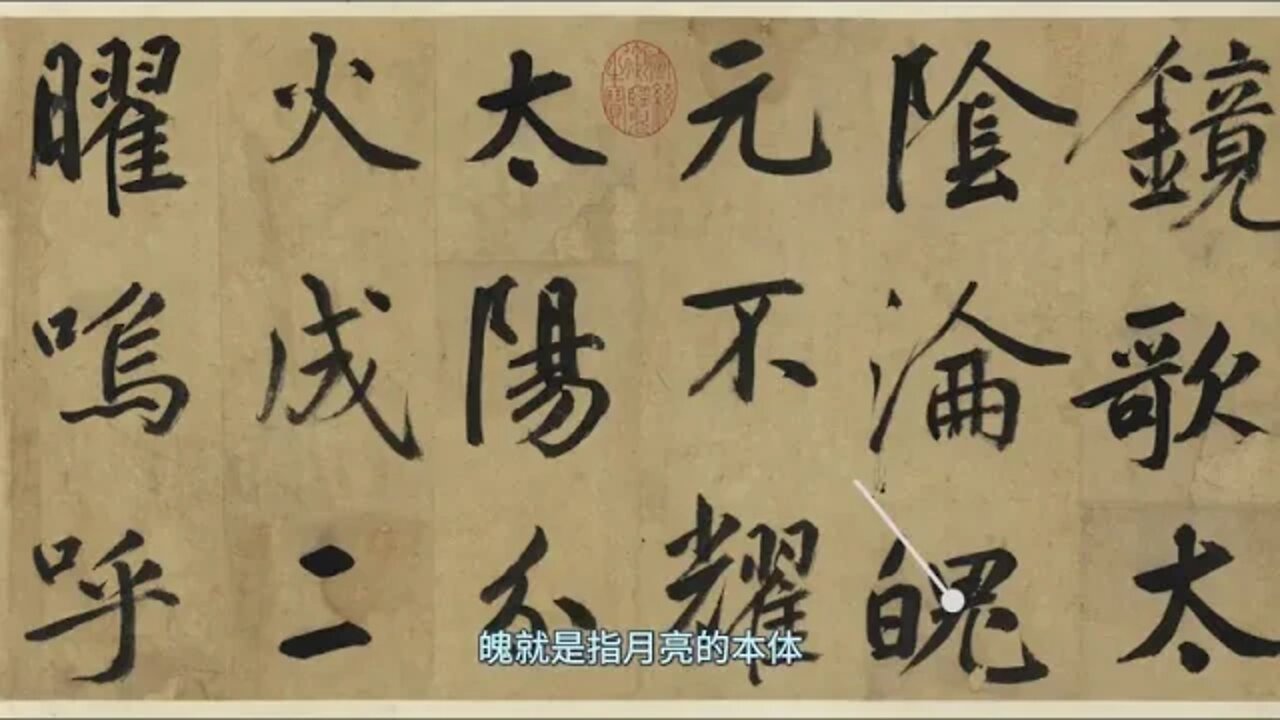 鏡歌太
陰淪魄
元不耀
太陽分
火成二
曜嗚呼
魄就是指月亮的本体